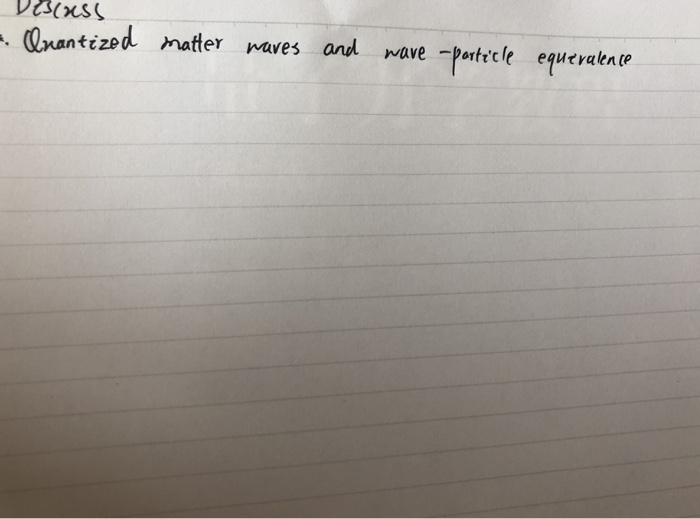 Discuss
. Quantized matter waves and wave-particle equivalence